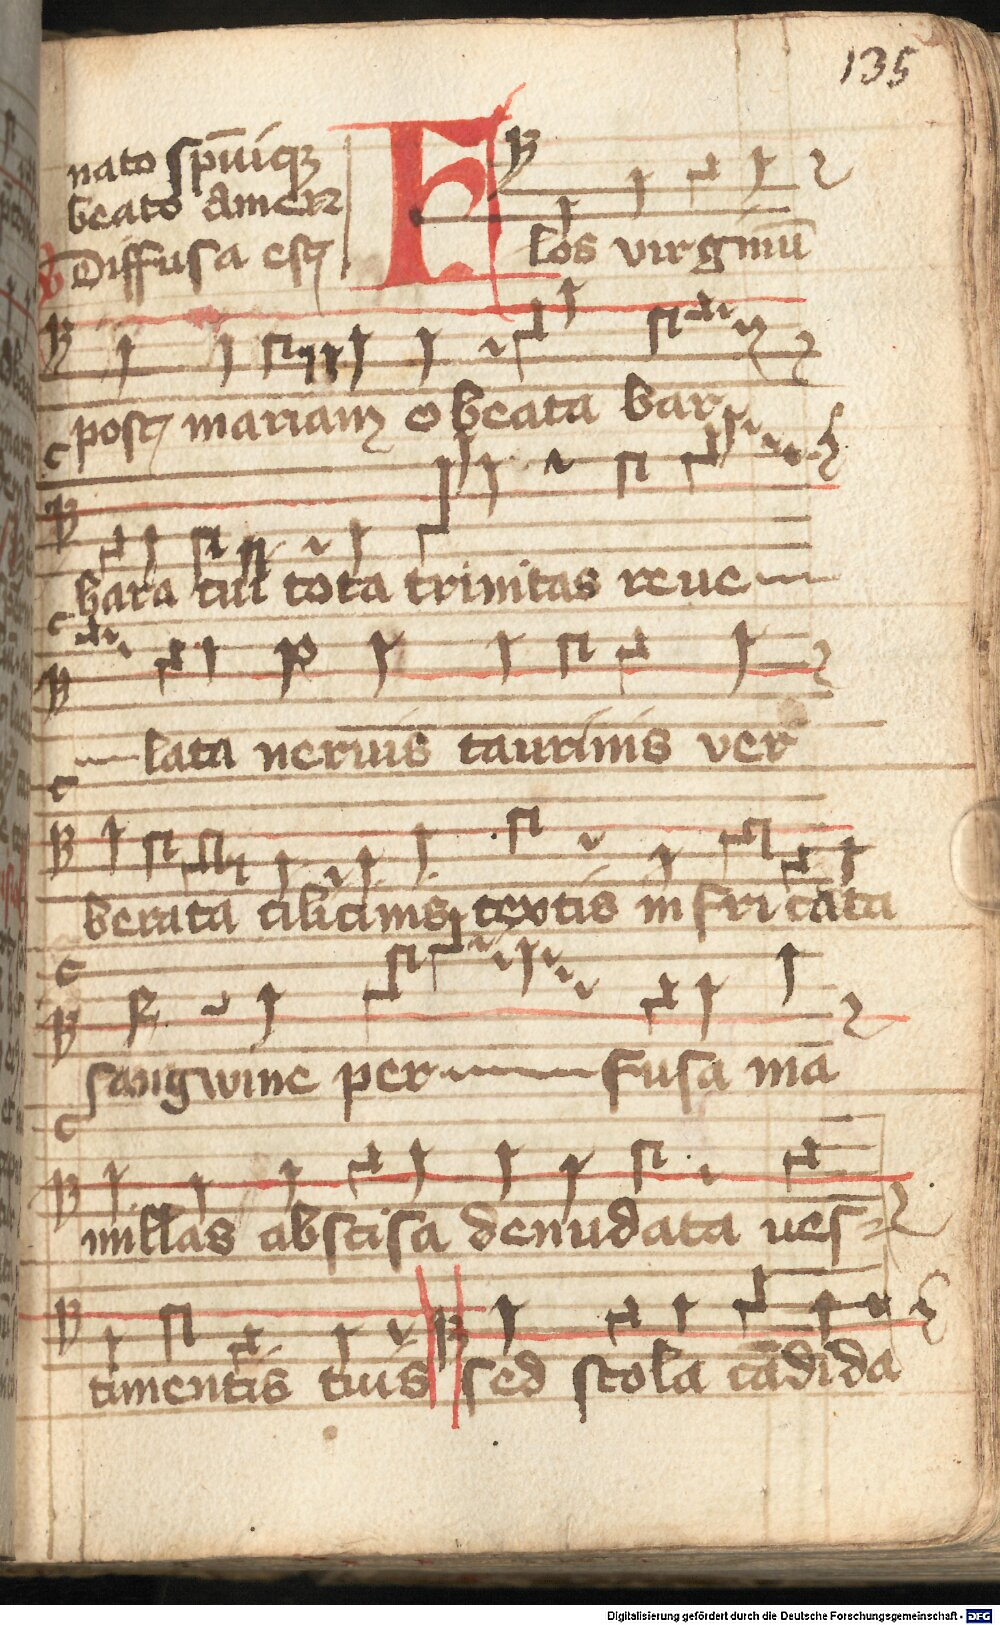 135
nato sp̄uiqꝫ
beato Amen
V Diffusa est
Flos virginū
post mariam O beata bar
bara tui tota trinitas reue
lata neruis taurinis ver
berata cilicinis textis infricata
sangwine per fusa ma
millas abscisa denudata ues
timentis tuis sed stola cādida
Digitalisierung gefördert durch die Deutsche Forschungsgemeinschaft - DFG